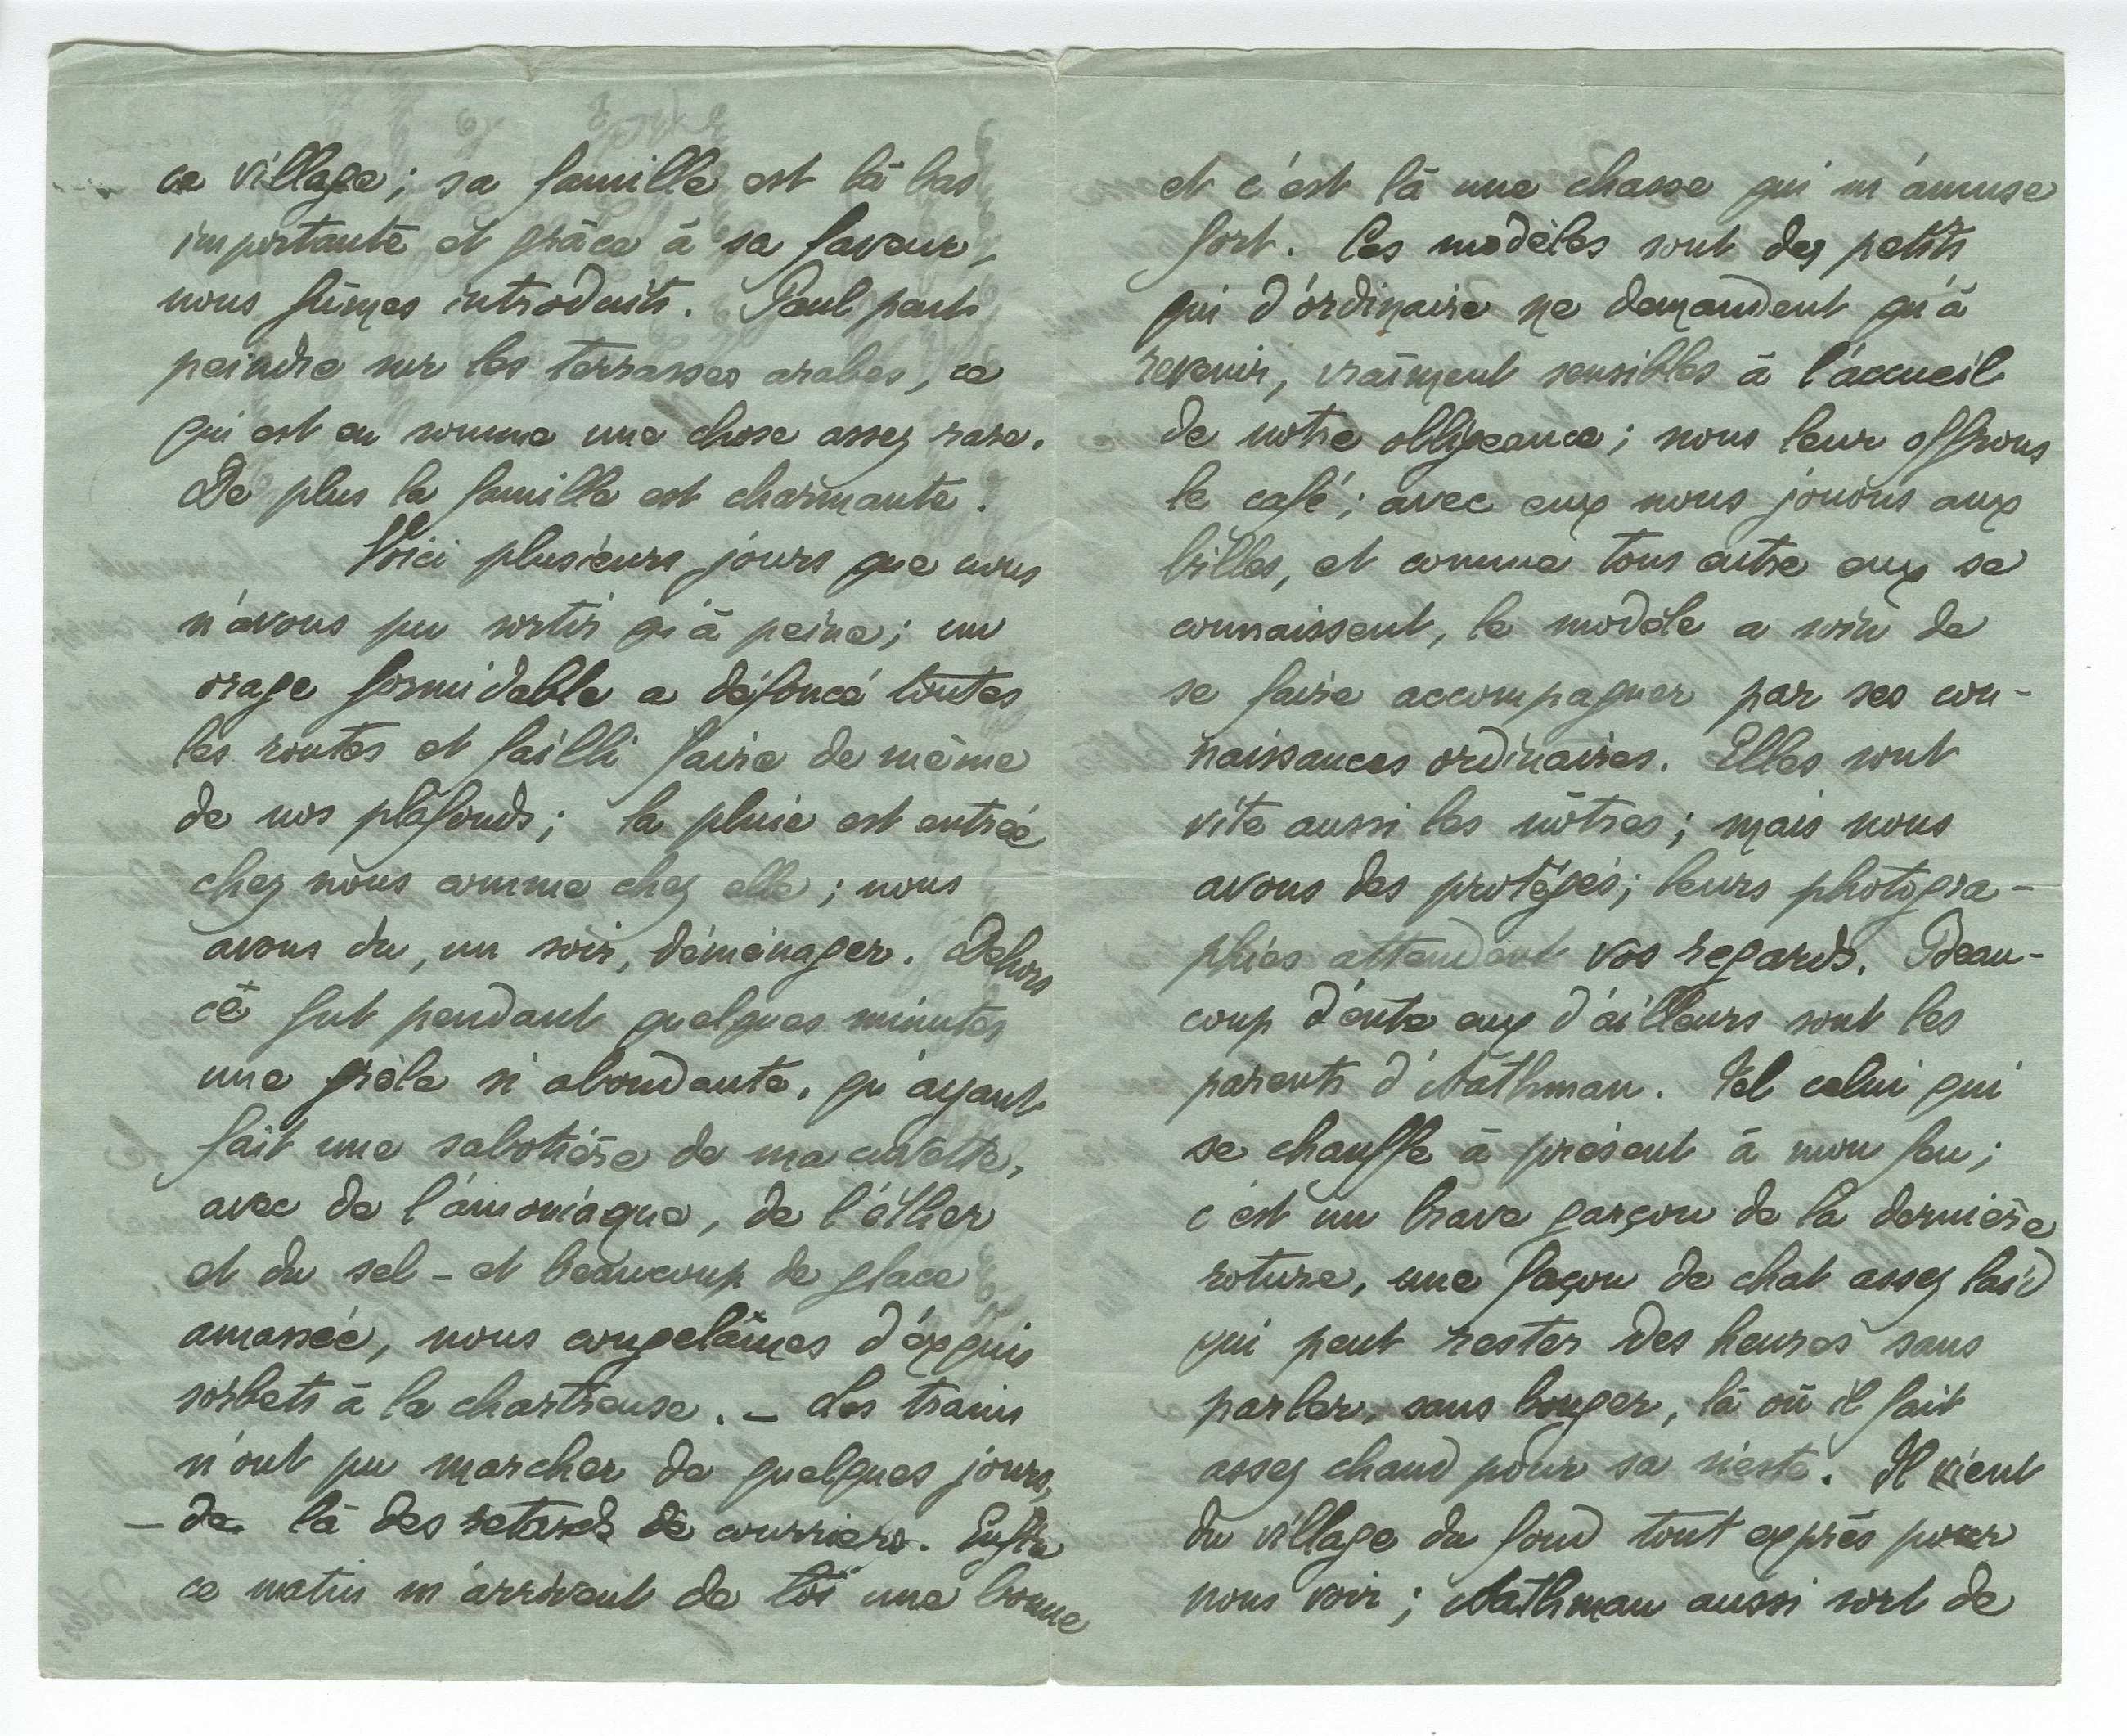 ce village ; sa famille est là bas
importante et grâce à sa faveur,
nous fûmes introduits. Paul peut
peindre sur les terrasses arabes, ce
qui est en somme une chose assez rare.
De plus la famille est charmante.
Voici plusieurs jours que nous
n'avons pu sortir qu'à peine ; un
orage formidable a défoncé toutes
les routes et failli faire de même
de nos plafonds ; la pluie est entrée
chez nous comme chez elle ; nous
avons du, un soir, déménager. Dehors
ce fut pendant quelques minutes
une grèle si abondante, qu'ayant
fait une sabotière de ma cuvette,
avec de l'amoniaque, de l'éther
et du sel – et beaucoup de glace
amassée, nous congelâmes d'exquis
sorbets à la chartreuse. – Les trains
n'ont pu marcher de quelques jours,
– de là des retards de courriers. Enfin
ce matin m'arrivent de toi une bonne
et c'est là une chasse qui m'amuse
fort. Les modèles sont des petits
qui d'ordinaire ne demandent qu'à
revenir, vraiment sensibles à l'accueil
de notre obligeance ; nous leur offrons
le café ; avec eux nous jouons aux
billes, et comme tous entre eux se
connaissent, le modèle a soin de
se faire accompagner par ses con-
naissances ordinaires. Elles sont
vite aussi les nôtres ; mais nous
avons des protégés ; leurs photogra-
phies attendent vos regards. Beau-
coup d'ente eux d'ailleurs sont les
parents d'Aathman. Tel celui qui
se chauffe à présent à mon feu ;
c'est un brave garçon de la dernière
roture, une façon de chat assez laid
qui peut rester des heures sans
parler, sans bouger, là où il fait
assez chaud pour sa sieste. Il vient
du village du fond tout exprès pour
nous voir ; Aathman aussi sort de